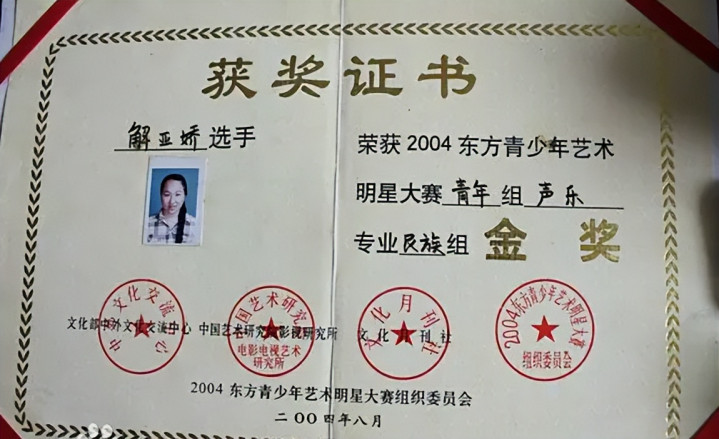 获奖证书
解亚娇选手
荣获2004东方青少年艺术
明星大赛青年组声乐
专业民族组 金奖
中外文化交流中心
中国艺术研究院
电影电视艺术
研究所
文化月刊社
2004东方青少年艺术明星大赛
组织委员会
文化部中外文化交流中心 中国艺术研究院影视研究所 文化月刊社
2004东方青少年艺术明星大赛组织委员会
二〇〇四年八月